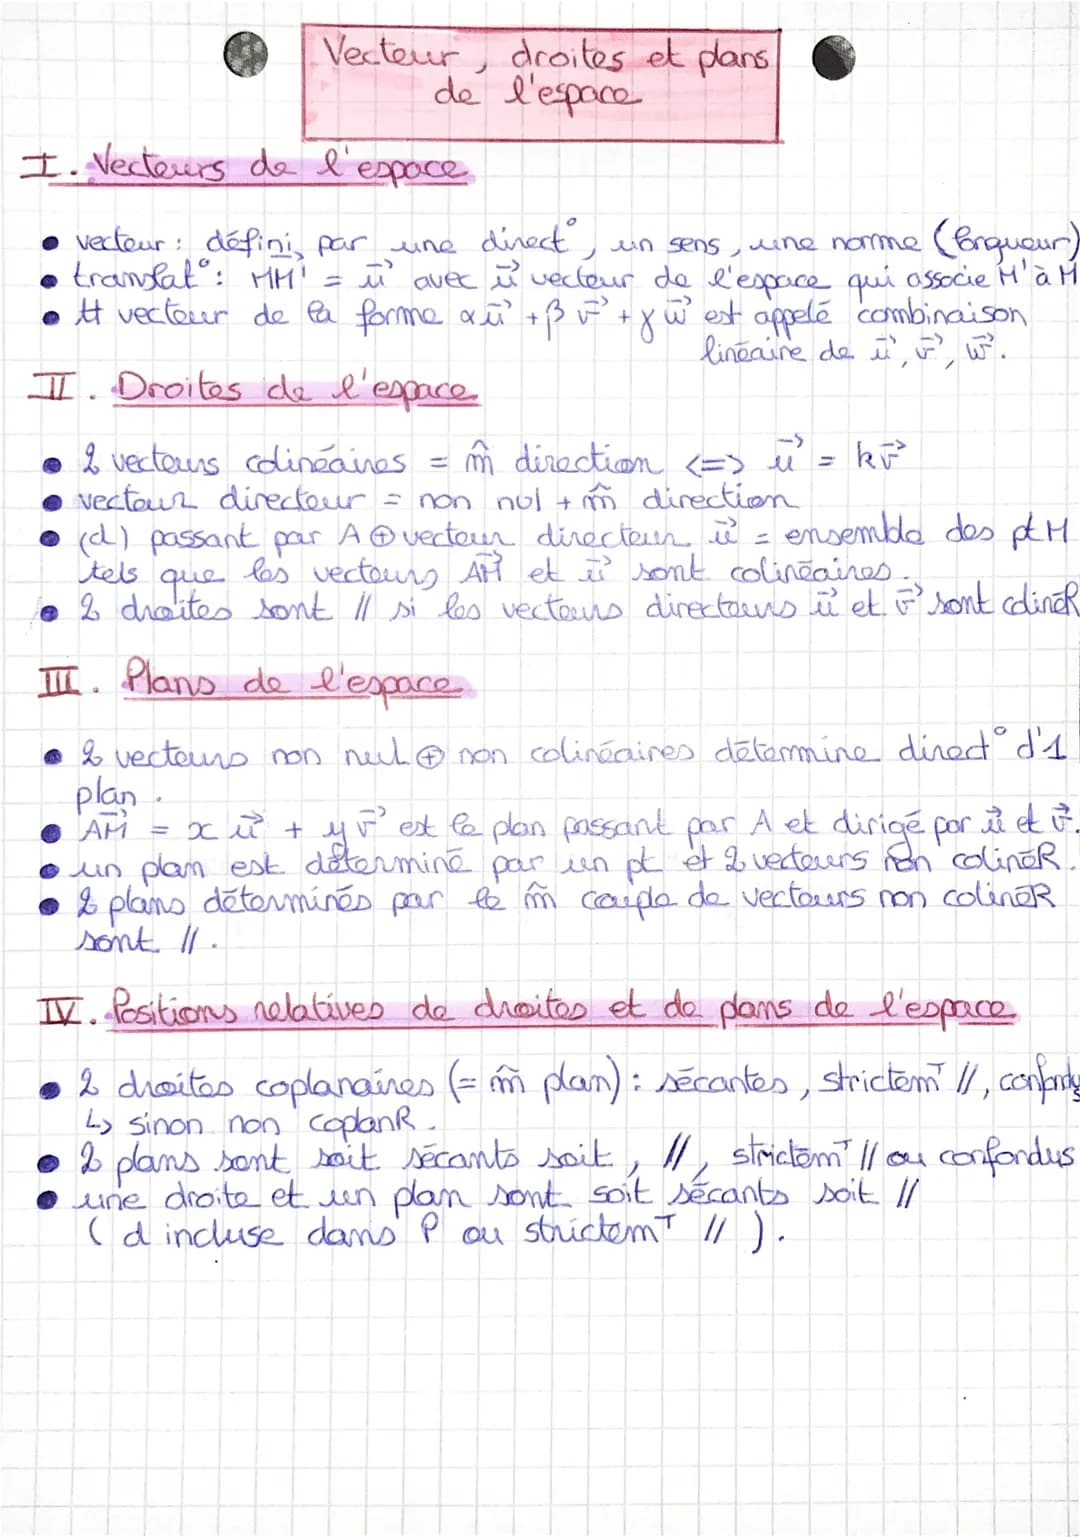 Vecteur, droites et plans
de l'espace
I. Vecteurs de l'espace
• vecteur : défini par une direct°, un sens, une norme (longueur)
• translat° : MM' = u⃗ avec u⃗ vecteur de l'espace qui associe M' à M
• tt vecteur de la forme αu⃗ + βv⃗ + γw⃗ est appelé combinaison
linéaire de u⃗, v⃗, w⃗.
II. Droites de l'espace
• 2 vecteurs colinéaires = m̂ direction <=> u⃗ = kv⃗
• vecteur directeur = non nul + m̂ direction
• (d) passant par A ⊕ vecteur directeur u⃗ = ensemble des pt M
tels que les vecteurs AM⃗ et u⃗ sont colinéaires.
• 2 droites sont // si les vecteurs directeurs u⃗ et v⃗ sont colinéR
III. Plans de l'espace
• 2 vecteurs non nul ⊕ non colinéaires détermine direct° d'1
plan.
• AM⃗ = x u⃗ + y v⃗ est le plan passant par A et dirigé par u⃗ et v⃗.
• un plan est déterminé par un pt et 2 vecteurs non colinéR.
• 2 plans déterminés par le m̂ couple de vecteurs non colinéR
sont //.
IV. Positions relatives de droites et de plans de l'espace
• 2 droites coplanaires (= m̂ plan) : sécantes, strictemᵀ //, confondus
↳ sinon non coplanR.
• 2 plans sont soit sécants soit, //, strictemᵀ // ou confondus
• une droite et un plan sont soit sécants soit //
(d incluse dans P ou strictemᵀ //).